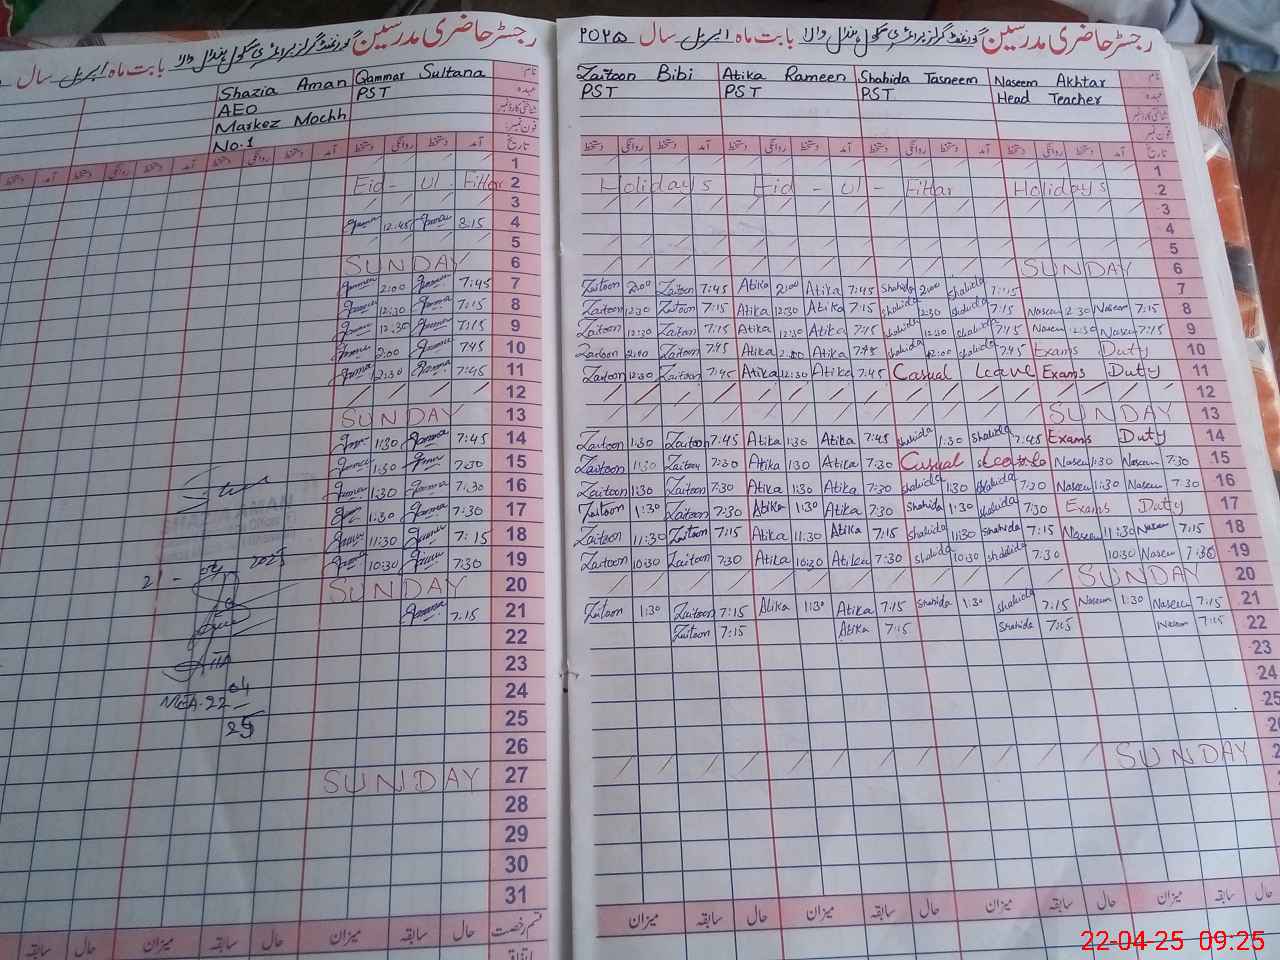 رجسٹر حاضری مدرسین گورنمنٹ گرلز پرائمری سکول بابت ماہ اپریل سال
Shazia Aman Qammar Sultana نام
AEO PST عہدہ
Markez Mochh
No.1 فون نمبر
دستخط روانگی دستخط آمد دستخط روانگی دستخط آمد دستخط روانگی دستخط آمد تاریخ
1
Eid - Ul - Fitter 2
3
12:45 8:15 4
5
SUNDAY 6
2:00 7:45 7
12:30 7:15 8
12:30 7:15 9
2:00 7:45 10
12:30 7:45 11
12
SUNDAY 13
1:30 7:45 14
1:30 7:30 15
1:30 7:30 16
1:30 7:30 17
11:30 7:15 18
10:30 7:30 19
SUNDAY 20
7:15 21
22
23
24
25
26
SUNDAY 27
28
29
30
31
میزان سابقہ حال میزان سابقہ حال قسم رخصت
رجسٹر حاضری مدرسین گورنمنٹ گرلز پرائمری سکول بابت ماہ اپریل سال ۲۰۲۵
Zaitoon Bibi Atika Rameen Shahida Tasneem Naseem Akhtar نام
PST PST PST Head Teacher عہدہ
فون نمبر
دستخط روانگی دستخط آمد دستخط روانگی دستخط آمد دستخط روانگی دستخط آمد دستخط روانگی دستخط آمد تاریخ
1
Holidays Eid - Ul - Fittar Holidays 2
3
4
5
SUNDAY 6
Zaitoon 2:00 Zaitoon 7:45 Atika 2:00 Atika 7:45 Shahida 2:00 Shahida 7
Zaitoon 12:30 Zaitoon 7:15 Atika 12:30 Atika 7:15 Shahida 12:30 Shahida 7:15 Naseem 12:30 Naseem 7:15 8
Zaitoon 12:30 Zaitoon 7:15 Atika 12:30 Atika 7:15 Shahida 12:30 Shahida Naseem 12:30 Naseem 7:15 9
Zaitoon 2:00 Zaitoon 7:45 Atika 2:00 Atika 7:45 Shahida 2:00 Shahida 7:45 Exams Duty 10
Zaitoon 12:30 Zaitoon 7:45 Atika 12:30 Atika 7:45 Casual Leave Exams Duty 11
12
SUNDAY 13
Zaitoon 1:30 Zaitoon 7:45 Atika 1:30 Atika 7:45 Shahida 1:30 Shahida 7:45 Exams Duty 14
Zaitoon 11:30 Zaitoon 7:30 Atika 1:30 Atika 7:30 Casual Leave Naseem 1:30 Naseem 7:30 15
Zaitoon 1:30 Zaitoon 7:30 Atika 1:30 Atika 7:30 Shahida 1:30 Shahida 7:30 Naseem 1:30 Naseem 7:30 16
Zaitoon 1:30 Zaitoon 7:30 Atika 1:30 Atika 7:30 Shahida 1:30 Shahida 7:30 Exams Duty 17
Zaitoon 11:30 Zaitoon 7:15 Atika 11:30 Atika 7:15 Shahida 11:30 Shahida 7:15 Naseem 11:30 Naseem 7:15 18
Zaitoon 10:30 Zaitoon 7:30 Atika 10:30 Atika 7:30 Shahida 10:30 Shahida 7:30 10:30 Naseem 7:30 19
SUNDAY 20
Zaitoon 1:30 Zaitoon 7:15 Atika 1:30 Atika 7:15 Shahida 1:30 Shahida 7:15 Naseem 1:30 Naseem 7:15 21
Zaitoon 7:15 Atika 7:15 Shahida 7:15 Naseem 7:15 22
23
24
25
SUNDAY
میزان سابقہ حال میزان سابقہ حال میزان سابقہ حال میزان سابقہ حال
22-04-25 09:25